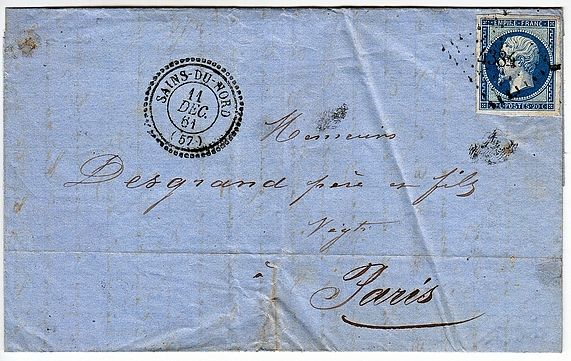 EMPIRE FRANC.
POSTES 20 C
SAINS-DU-NORD
11
DEC.
61
(57)
Messieurs
Desgrand père et fils
Négts
à
Paris